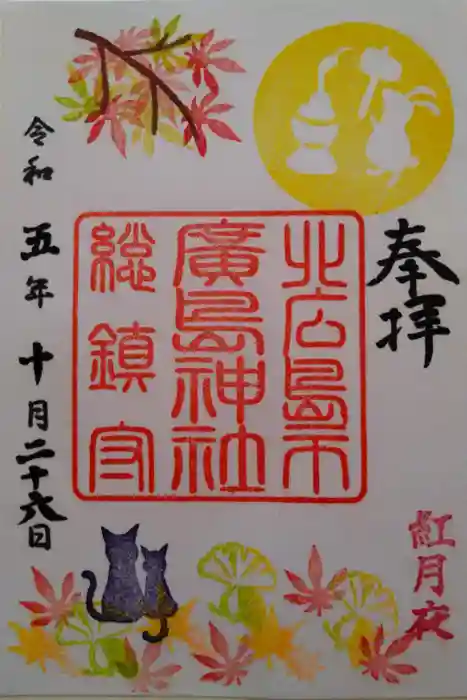 奉拝
紅月夜
北広島市
廣島神社
総鎮守
令和五年十月二十六日